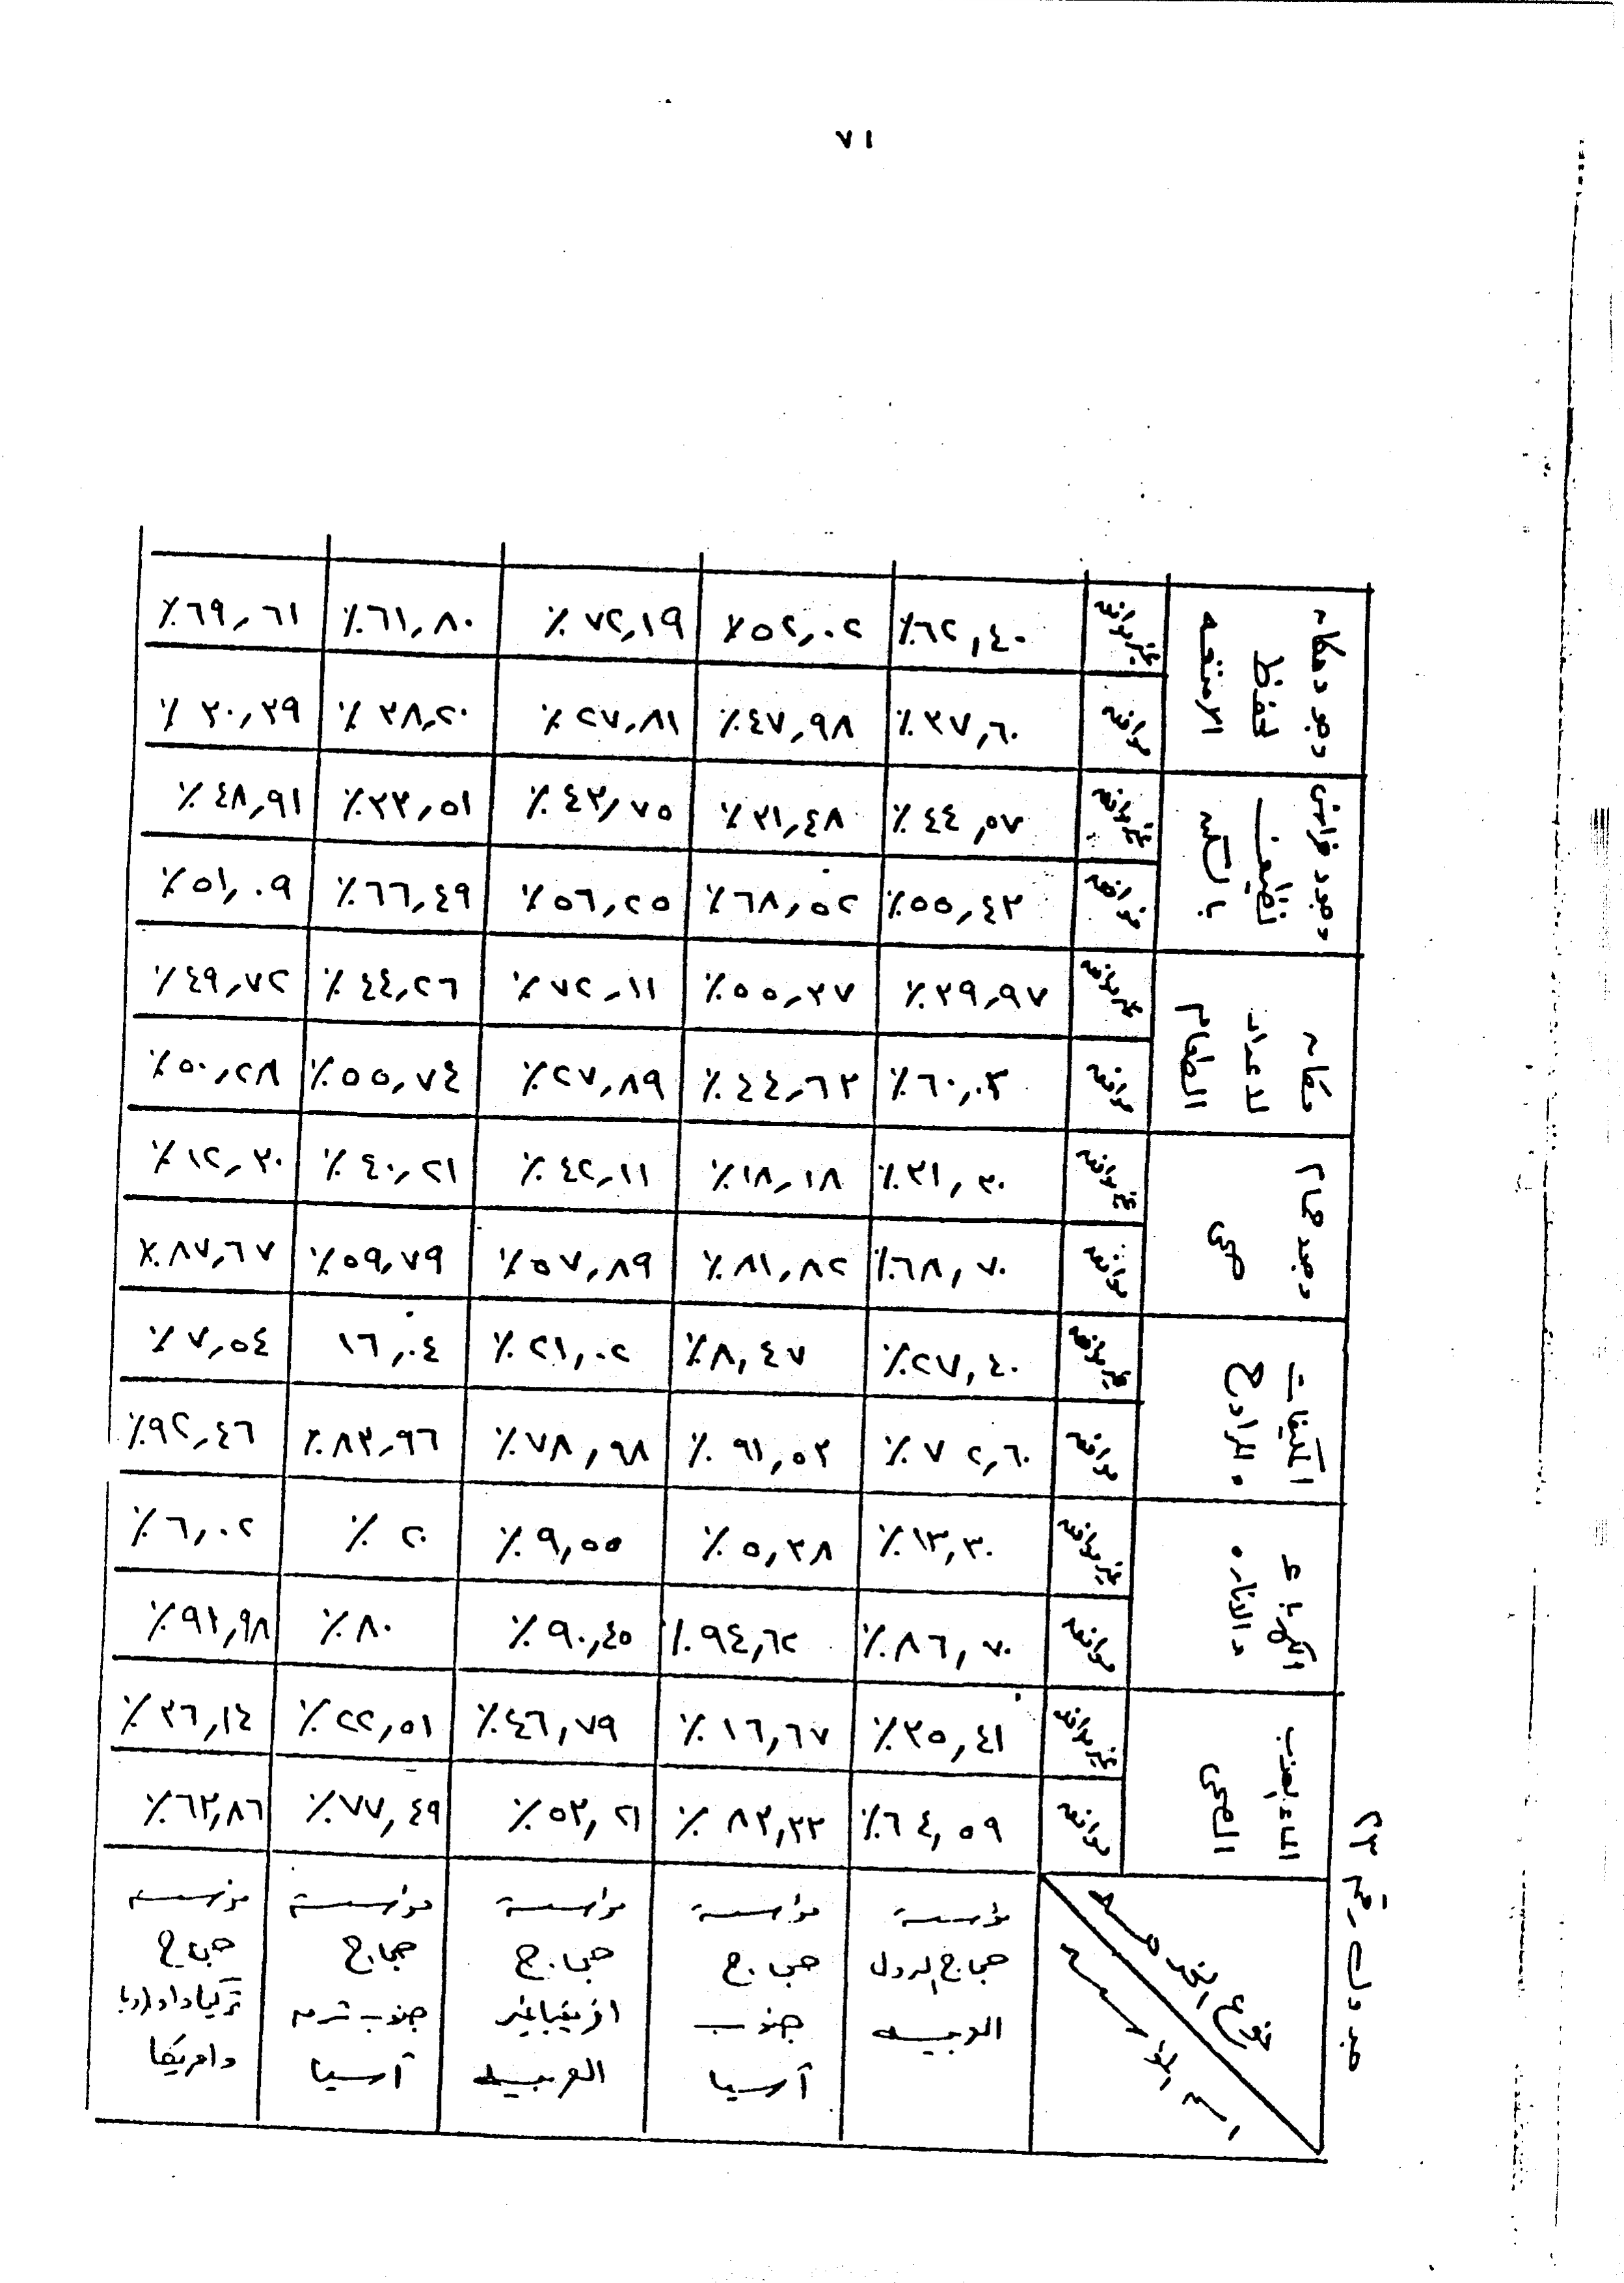 ٧١
جدول رقم ٢٣
نوع الخدمة
اسم المؤسسة
الصحى
الكهرباء
والانارة
المكيفات
والمراوح
وجود حمام
صحى
مكان
لاعداد
الطعام
وجود فراش
نظيف
بالسكن
وجود مكان
لحفظ
الامتعه
موافق غير موافق موافق غير موافق موافق غير موافق موافق غير موافق موافق غير موافق موافق غير موافق موافق غير موافق
مؤسسة
حجاج الدول
العربيه
٦٤,٥٩٪ ٣٥,٤١٪ ٨٦,٧٠٪ ١٣,٣٠٪ ٧٢,٦٠٪ ٢٧,٤٠٪ ٦٨,٧٠٪ ٣١,٣٠٪ ٦٠,٠٣٪ ٣٩,٩٧٪ ٥٥,٤٣٪ ٤٤,٥٧٪ ٣٧,٦٠٪ ٦٢,٤٠٪
مؤسسة
حجاج
جنوب
آسيا
٨٣,٣٣٪ ١٦,٦٧٪ ٩٤,٦٢٪ ٥,٣٨٪ ٩١,٥٣٪ ٨,٤٧٪ ٨١,٨٢٪ ١٨,١٨٪ ٤٤,٦٣٪ ٥٥,٣٧٪ ٦٨,٥٢٪ ٣١,٤٨٪ ٤٧,٩٨٪ ٥٢,٠٢٪
مؤسسة
حجاج
افريقيا غير
العربيه
٥٣,٢١٪ ٤٦,٧٩٪ ٩٠,٤٥٪ ٩,٥٥٪ ٧٨,٩٨٪ ٢١,٠٢٪ ٥٧,٨٩٪ ٤٢,١١٪ ٢٧,٨٩٪ ٧٢,١١٪ ٥٦,٢٥٪ ٤٣,٧٥٪ ٢٧,٨١٪ ٧٢,١٩٪
مؤسسة
حجاج
جنوب شرق
آسيا
٧٧,٤٩٪ ٢٢,٥١٪ ٨٠٪ ٢٠٪ ٨٣,٩٦٪ ١٦,٠٤ ٥٩,٧٩٪ ٤٠,٢١٪ ٥٥,٧٤٪ ٤٤,٢٦٪ ٦٦,٤٩٪ ٣٣,٥١٪ ٣٨,٢٠٪ ٦١,٨٠٪
مؤسسه
حجاج
تركيا واوروبا
وامريكا
٦٣,٨٦٪ ٣٦,١٤٪ ٩٣,٩٨٪ ٦,٠٢٪ ٩٢,٤٦٪ ٧,٥٤٪ ٨٧,٦٧٪ ١٢,٣٠٪ ٥٠,٢٨٪ ٤٩,٧٢٪ ٥١,٠٩٪ ٤٨,٩١٪ ٣٠,٣٩٪ ٦٩,٦١٪